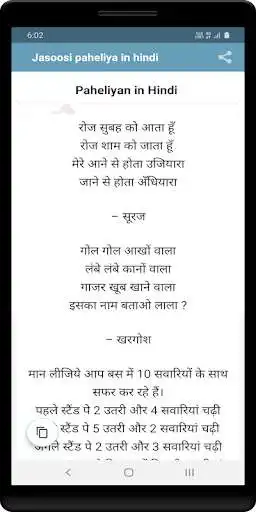 6:02
Jasoosi paheliya in hindi
Paheliyan in Hindi
रोज सुबह को आता हूँ
रोज शाम को जाता हूँ
मेरे आने से होता उजियारा
जाने से होता अँधियारा
– सूरज
गोल गोल आखों वाला
लंबे लंबे कानों वाला
गाजर खूब खाने वाला
इसका नाम बताओ लाला ?
– खरगोश
मान लीजिये आप बस में 10 सवारियों के साथ
सफर कर रहे हैं।
पहले स्टैंड पे 2 उतरी और 4 सवारियां चढ़ी
स्टैंड पे 5 उतरी और 2 सवारियां चढ़ी
अगले स्टैंड पे 2 उतरी और 3 सवारियां चढ़ी